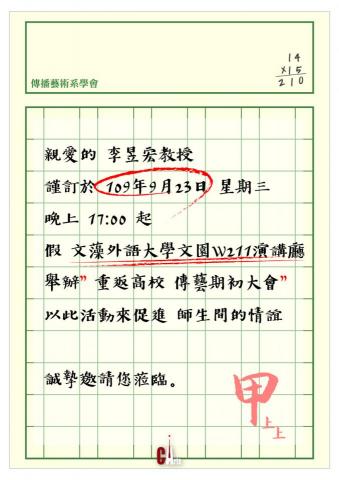 傳播藝術系學會
14
x15
210
親愛的 李昱宏教授
謹訂於 109年9月23日 星期三
晚上 17:00 起
假 文藻外語大學文園W211演講廳
舉辦” 重返高校 傳藝期初大會”
以此活動來促進 師生間的情誼
誠摯邀請您蒞臨。
甲
上上